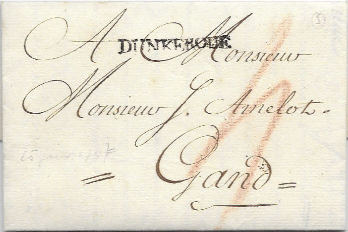 A Monsieur
DUNKERQUE
Monsieur J. Amelot.
= Gand =